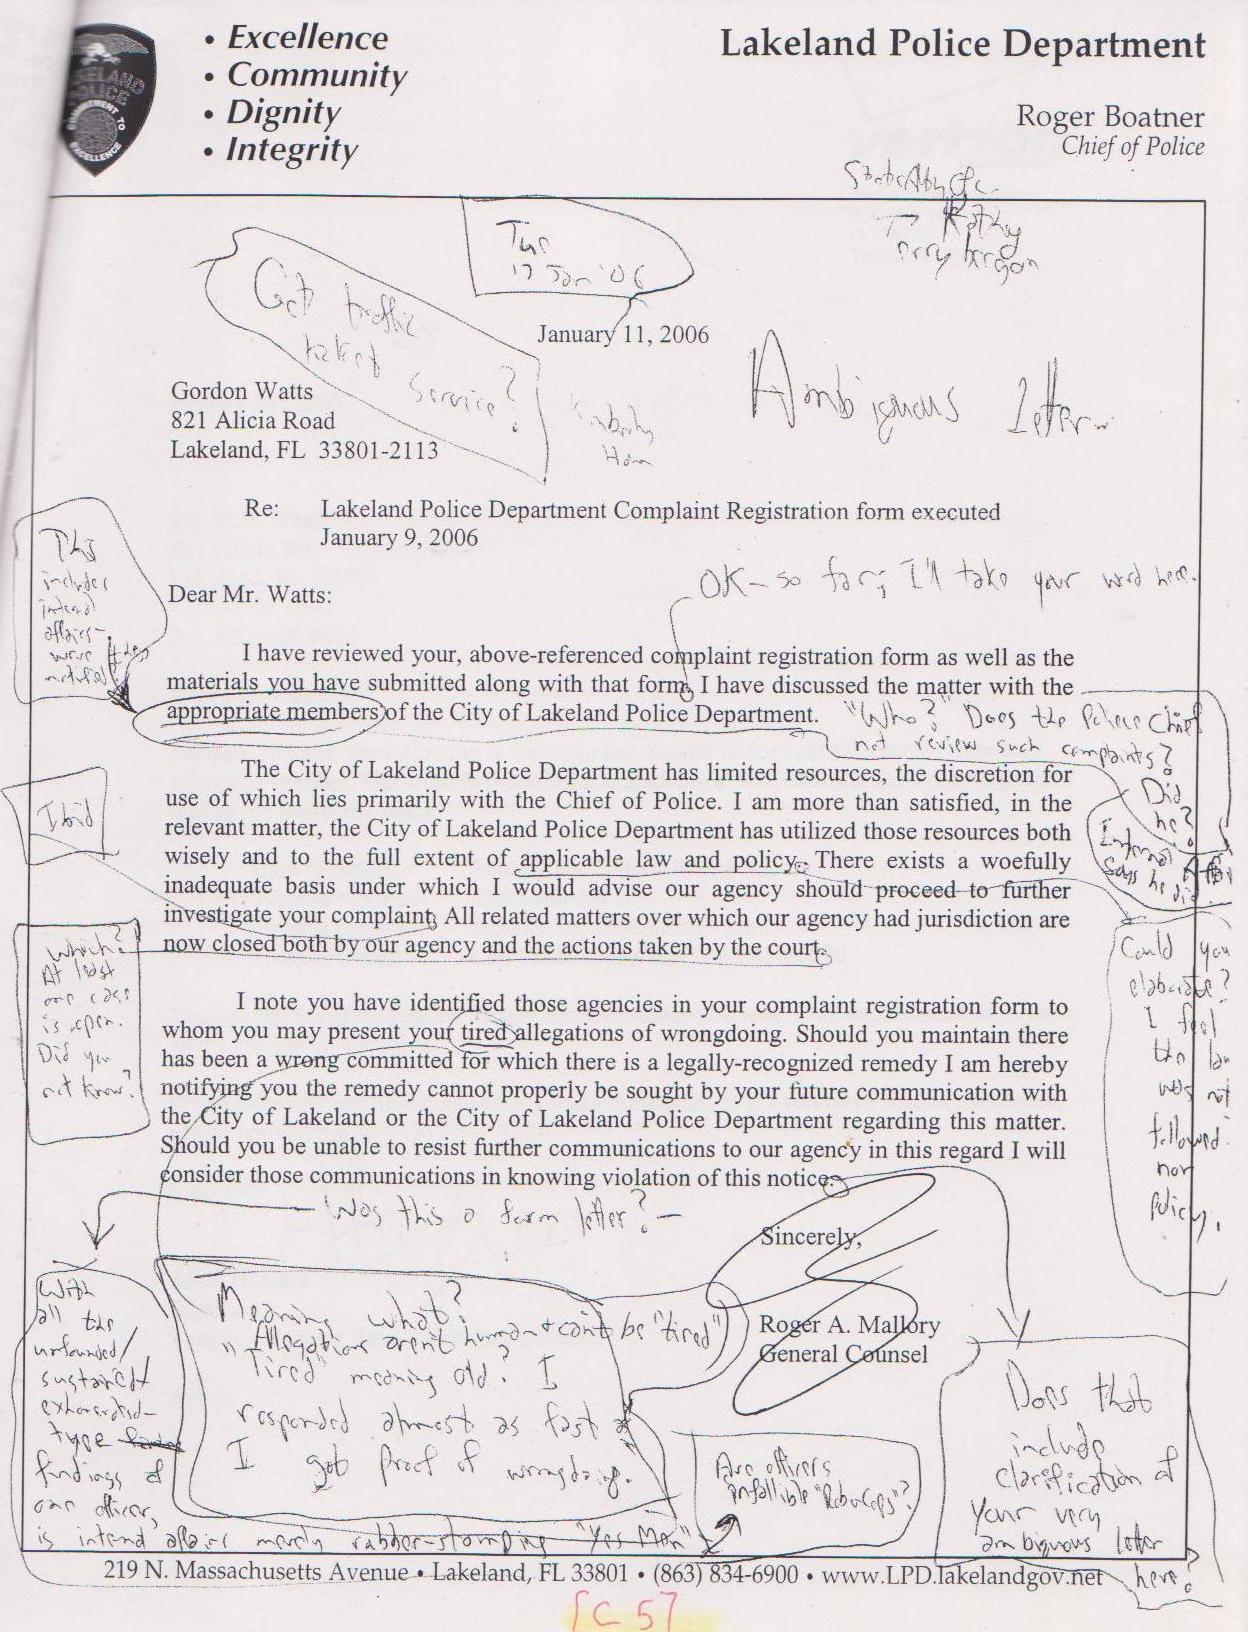 • Excellence
• Community
• Dignity
• Integrity
Lakeland Police Department
Roger Boatner
Chief of Police
LAKELAND
POLICE
COMMITMENT TO
EXCELLENCE
Tue
17 Jan '06
Get traffic
ticket service?
January 11, 2006
Ambiguous letter
Gordon Watts
821 Alicia Road
Lakeland, FL 33801-2113
Re: Lakeland Police Department Complaint Registration form executed
January 9, 2006
OK - so far; I'll take your word here.
Dear Mr. Watts:
This
includes
internal
affairs-
were they
notified?
I have reviewed your, above-referenced complaint registration form as well as the
materials you have submitted along with that form. I have discussed the matter with the
appropriate members of the City of Lakeland Police Department.
"Who?" Does the Police Chief
not review such complaints?
Did
he?
Internal Affairs
says he did
The City of Lakeland Police Department has limited resources, the discretion for
use of which lies primarily with the Chief of Police. I am more than satisfied, in the
relevant matter, the City of Lakeland Police Department has utilized those resources both
wisely and to the full extent of applicable law and policy. There exists a woefully
inadequate basis under which I would advise our agency should proceed to further
investigate your complaint. All related matters over which our agency had jurisdiction are
now closed both by our agency and the actions taken by the court.
Ibid
Which?
At least
one case
is open.
Did you
not know?
Could you
elaborate?
I feel
the law
was not
followed.
nor
policy.
I note you have identified those agencies in your complaint registration form to
whom you may present your tired allegations of wrongdoing. Should you maintain there
has been a wrong committed for which there is a legally-recognized remedy I am hereby
notifying you the remedy cannot properly be sought by your future communication with
the City of Lakeland or the City of Lakeland Police Department regarding this matter.
Should you be unable to resist further communications to our agency in this regard I will
consider those communications in knowing violation of this notice.
- Was this a form letter? -
Sincerely,
Roger A. Mallory
General Counsel
With
all the
unfounded/
sustained/
exhonerated-
type
findings of
our officer,
is internal affairs merely rubber-stamping "Yes Men"
Meaning what?
"Allegations aren't human & can't be "tired")
Tired" meaning old? I
responded almost as fast as
I got proof of wrongdoing.
Are officers
infallible "RoboCops"?
Does that
include
clarification of
your very
ambiguous letter
here?
219 N. Massachusetts Avenue • Lakeland, FL 33801 • (863) 834-6900 • www.LPD.lakelandgov.net
[C 5]